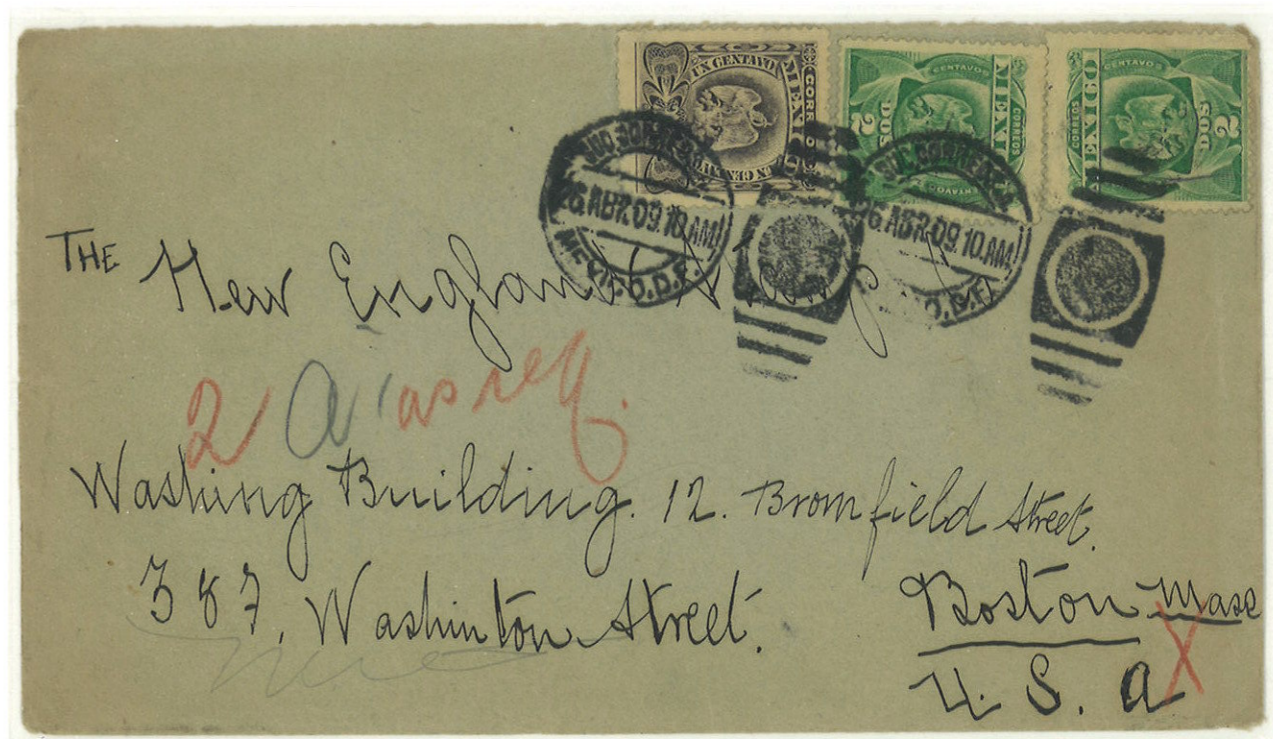 UN CENTAVO MEXICO CORREOS UN CENTAVO
CENTAVOS MEXICO CORREOS 2 DOS CENTAVOS
CENTAVOS MEXICO CORREOS 2 DOS
SUC. CORREOS
26.ABR.09.10 AM
MEXICO.D.F.
SUC. CORREOS
26.ABR.09.10 AM
O.D.F.
THE New England
2 a
Washing Building. 12. Bromfield Street.
387, Washinton Street.
Boston Mass
X
U. S. A